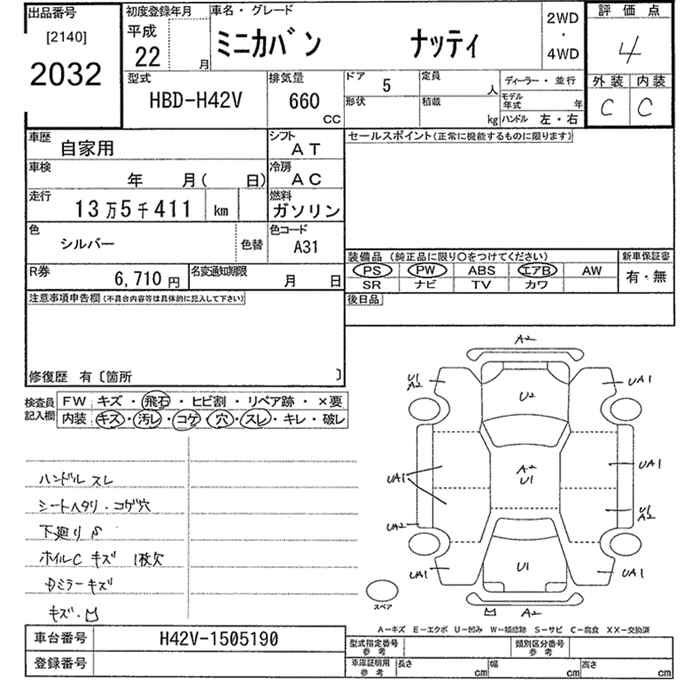 出品番号
[2140]
2032
初度登録年月
平成
22
月
車名・グレード
ミニカバン ナッティ
2WD
・
4WD
評価点
4
外装 内装
C C
型式
HBD-H42V
排気量
660
CC
ドア 5
形状
定員
人
積載
kg
ディーラー・並行
モデル年式 年
ハンドル 左・右
車歴
自家用
シフト
AT
車検
年 月( 日)
冷房
AC
走行
13万5千411 km
燃料
ガソリン
色
シルバー
色替
色コード
A31
R券
6,710円
名変通知期限
月 日
セールスポイント(正常に機能するものに限ります)
装備品 (純正品に限り○をつけてください)
新車保証書
PS PW ABS エアB AW
有・無
SR ナビ TV カワ
後日品
注意事項申告欄(不具合内容等は具体的に記入して下さい)
修復歴 有〔箇所 〕
検査員
記入欄
FW キズ・飛石・ヒビ割・リペア跡・×要
内装 キズ・汚レ・コゲ・穴・スレ・キレ・破レ
ハンドル スレ
シートヘタリ・コゲ穴
下廻り S
ホイルC キズ 1枚欠
Dミラーキズ
キズ・凹
A2
U1
A2
UA1
U2
UA1
A2
U1
UA1
U1
A2
UA2
UA1
U1
UA1
スペア
凹 A2
A-キズ E-エクボ U-凹み W-補修跡 S-サビ C-腐食 XX-交換済
車台番号
H42V-1505190
登録番号
型式指定番号
参考
類別区分番号
参考
車庫証明用
参考
長さ cm
幅 cm
高さ cm